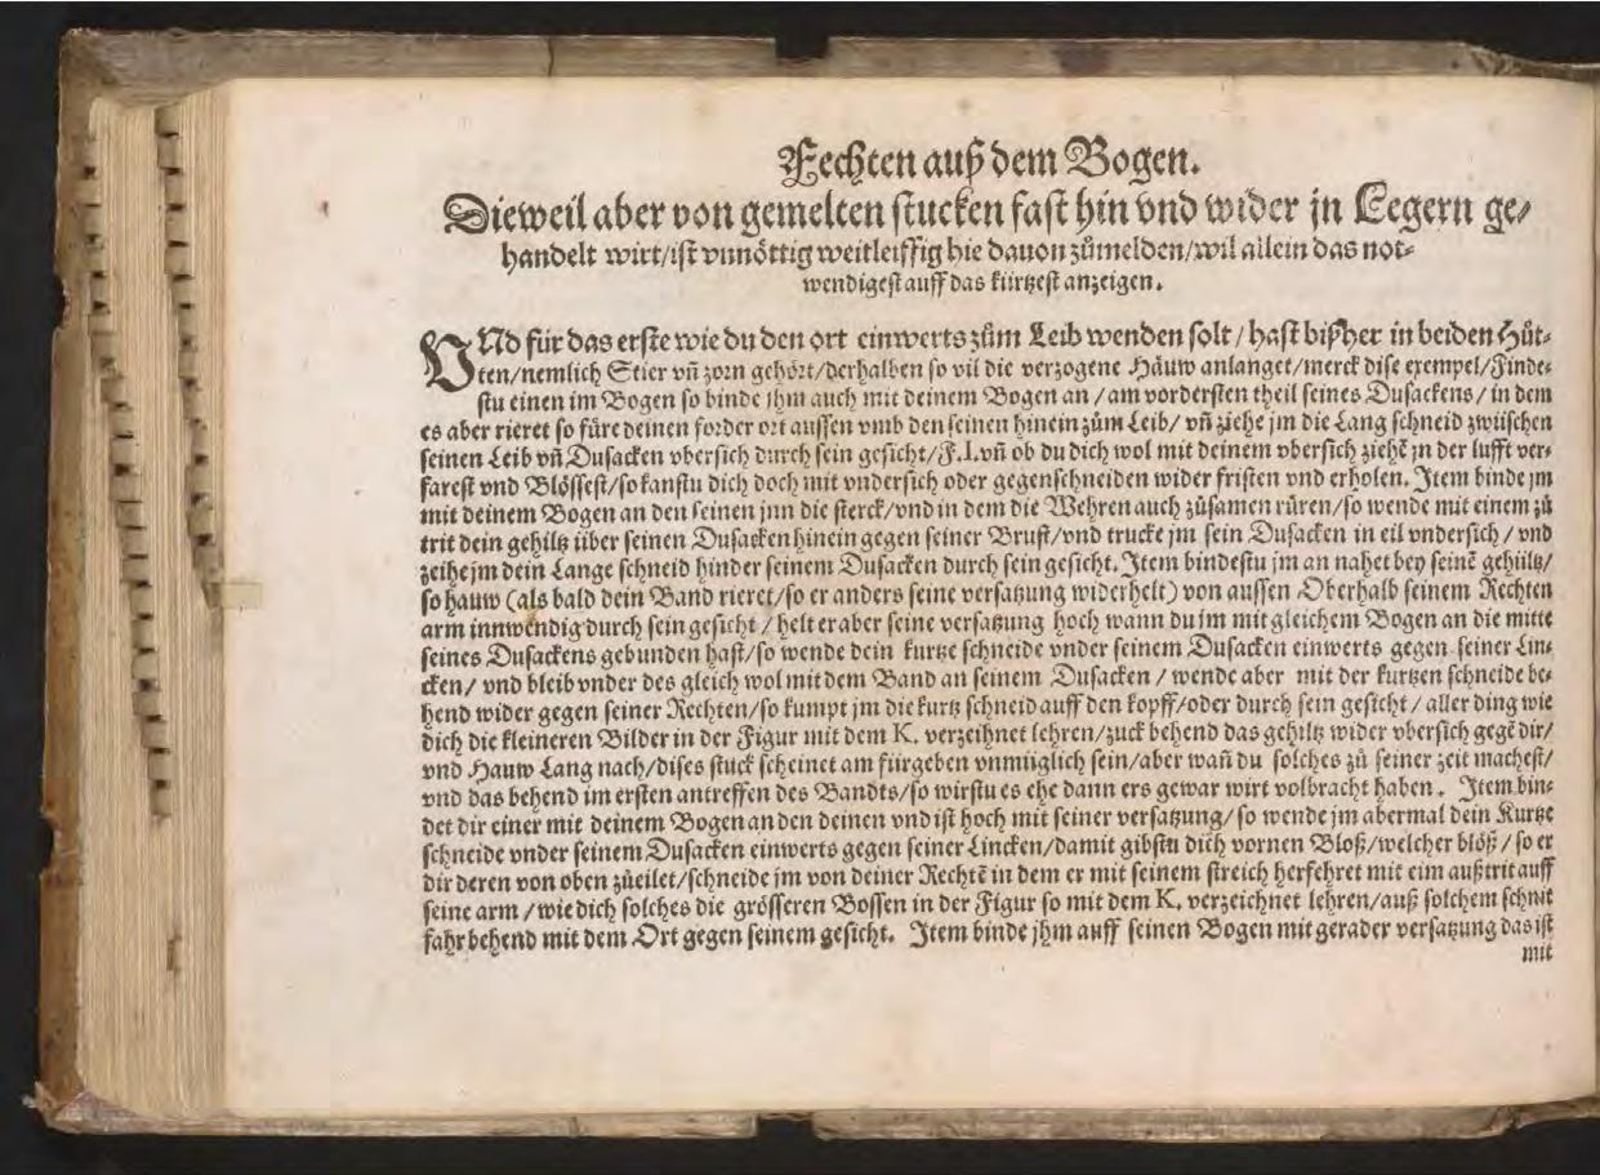 Fechten auß dem Bogen.
Dieweil aber von gemelten stucken fast hin vnd wider jn Legern ge⸗
handelt wirt/ist vnnöttig weitleiffig hie dauon zůmelden/wil allein das not⸗
wendigest auff das kürtzest anzeigen.
VNd für das erste wie du den ort einwerts zům Leib wenden solt/hast bißher in beiden Hůt⸗
ten/nemlich Stier vñ zorn gehört/derhalben so vil die verzogene Häuw anlanget/merck dise exempel/Finde⸗
stu einen im Bogen so binde jhm auch mit deinem Bogen an/am vordersten theil seines Dusackens/in dem
es aber rieret so füre deinen forder ort aussen vmb den seinen hinein zům Leib/vñ ziehe jm die Lang schneid zwüschen
seinen Leib vñ Dusacken vbersich durch sein gesicht/F.I. vñ ob du dich wol mit deinem vbersich ziehẽ jn der lufft ver⸗
farest vnd Blössest/so kanstu dich doch mit vndersich oder gegenschneiden wider fristen vnd erholen. Item binde jm
mit deinem Bogen an den seinen jnn die sterck/vnd in dem die Wehren auch zůsamen rüren/so wende mit einem zů
trit dein gehiltz über seinen Dusacken hinein gegen seiner Brust/vnd trucke jm sein Dusacken in eil vndersich/vnd
zeihe jm dein Lange schneid hinder seinem Dusacken durch sein gesicht. Item bindestu jm an nahet bey seinẽ gehültz/
so hauw (als bald dein Band rieret/so er anders seine versatzung widerhelt) von aussen Oberhalb seinem Rechten
arm innwendig durch sein gesicht/helt er aber seine versatzung hoch wann du im mit gleichem Bogen an die mitte
seines Dusackens gebunden hast/so wende dein kurtze schneide vnder seinem Dusacken einwerts gegen seiner Lin⸗
cken/vnd bleib vnder des gleich wol mit dem Band an seinem Dusacken/wende aber mit der kurtzen schneide be⸗
hend wider gegen seiner Rechten/so kumpt jm die kurtz schneid auff den kopff/oder durch sein gesicht/aller ding wie
dich die kleineren Bilder in der Figur mit dem K. verzeihnet lehren/zuck behend das gehiltz wider vbersich gegẽ dir/
vnd Hauw Lang nach/dises stuck scheinet am fürgeben vnmüglich sein/aber wañ du solches zů seiner zeit machest/
vnd das behend im ersten antreffen des Bandts/so wirstu es ehe dann ers gewar wirt volbracht haben. Item bin⸗
det dir einer mit deinem Bogen an den deinen vnd ist hoch mit seiner versatzung/so wende jm abermal dein Kurtze
schneide vnder seinem Dusacken einwerts gegen seiner Lincken/damit gibstu dich vornen Bloß/welcher blöß/so er
dir deren von oben zůeilet/schneide jm von deiner Rechtẽ in dem er mit seinem streich herfehret mit eim außtrit auff
seine arm/wie dich solches die grösseren Bossen in der Figur so mit dem K. verzeichnet lehren/auß solchem schnit
fahr behend mit dem Ort gegen seinem gesicht. Item binde jhm auff seinen Bogen mit gerader versatzung das ist
mit